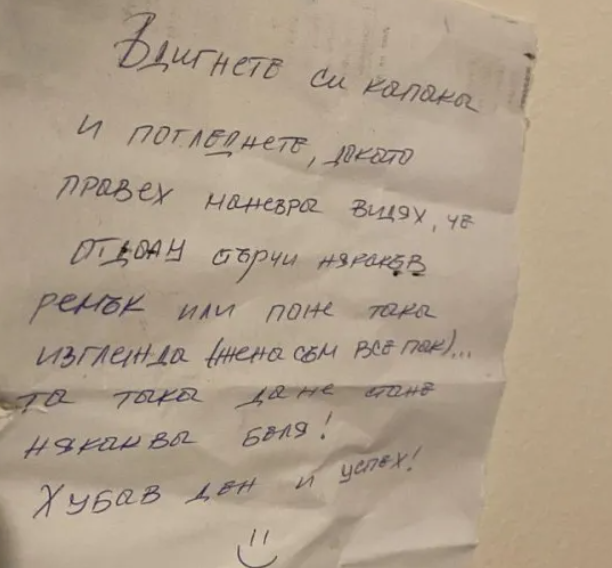 Вдигнете си капака
и погледнете, докато
правех маневра видях, че
отдолу стърчи някакъв
ремък или поне така
изглежда (жена съм все пак)...
та така да не стане
някаква беля!
Хубав ден и успех!